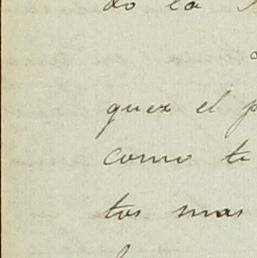 do la
quez el p
como te
tos mas